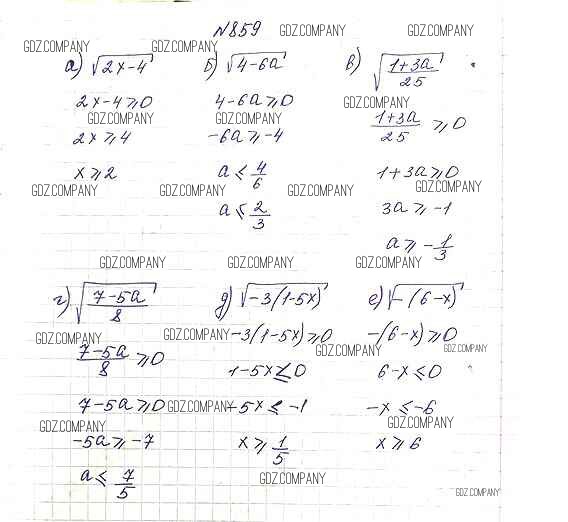 №859
GDZ.COMPANY GDZ.COMPANY
GDZ.COMPANY GDZ.COMPANY
а) √(2x-4) б) √(4-6a) в) √((1+3a)/25)
2x-4≥0 4-6a≥0 GDZ.COMPANY
GDZ.COMPANY GDZ.COMPANY (1+3a)/25 ≥0
2x≥4 -6a≥-4
x≥2 a≤4/6 1+3a≥0
GDZ.COMPANY GDZ.COMPANY GDZ.COMPANY GDZ.COMPANY
a≤2/3 3a≥-1
a≥-1/3
GDZ.COMPANY GDZ.COMPANY GDZ.COMPANY
г) √((7-5a)/8) д) √(-3(1-5x)) е) √(-(6-x))
GDZ.COMPANY GDZ.COMPANY -3(1-5x)≥0 -(6-x)≥0
(7-5a)/8 ≥0 GDZ.COMPANY GDZ.COMPANY
1-5x≤0 6-x≤0
7-5a≥0 GDZ.COMPANY -5x≤-1 -x≤-6
GDZ.COMPANY GDZ.COMPANY
-5a≥-7 x≥1/5 x≥6
a≤7/5 GDZ.COMPANY
GDZ.COMPANY